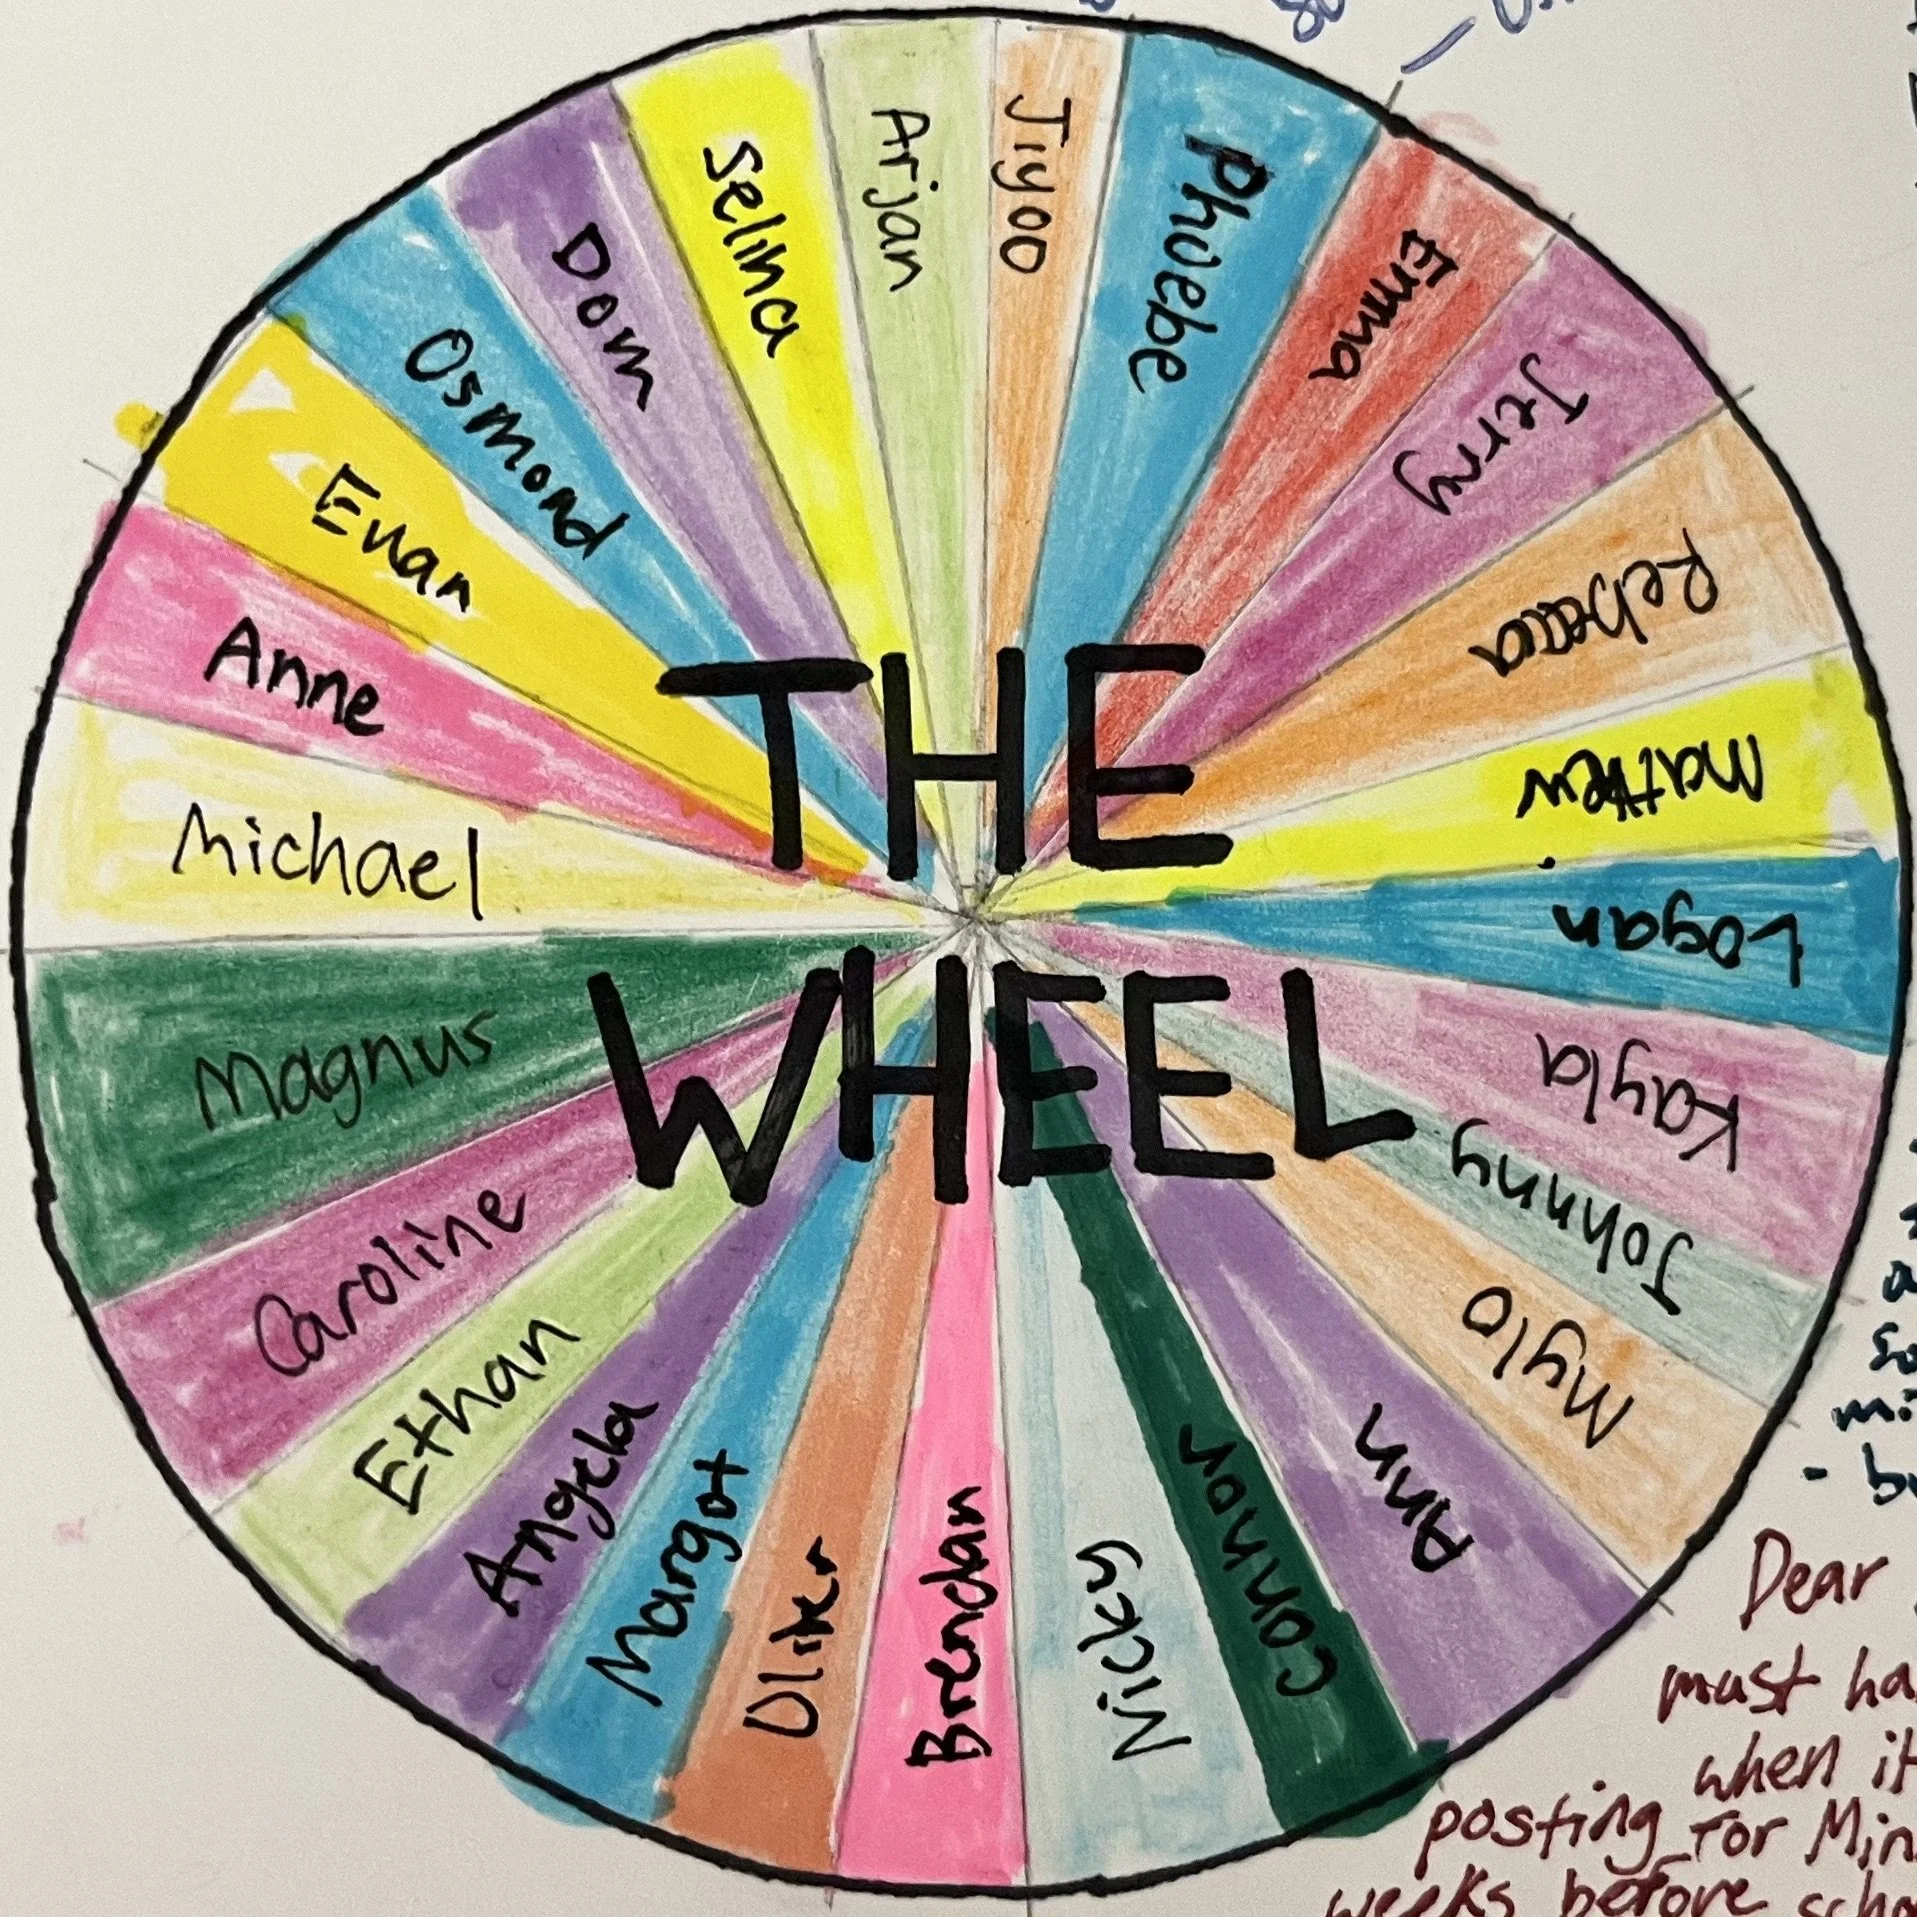 THE
WHEEL
Jiyoo
Phoebe
Emma
Jerry
Rebecca
Matthew
Logan
Kayla
Johnny
Mylo
Ann
Connor
Nicky
Brendan
Oliver
Margot
Angela
Ethan
Caroline
Magnus
Michael
Anne
Evan
Osmond
Dom
Selina
Arjan
- bu
Dear
must ha
when it
posting for Min
weeks before scho